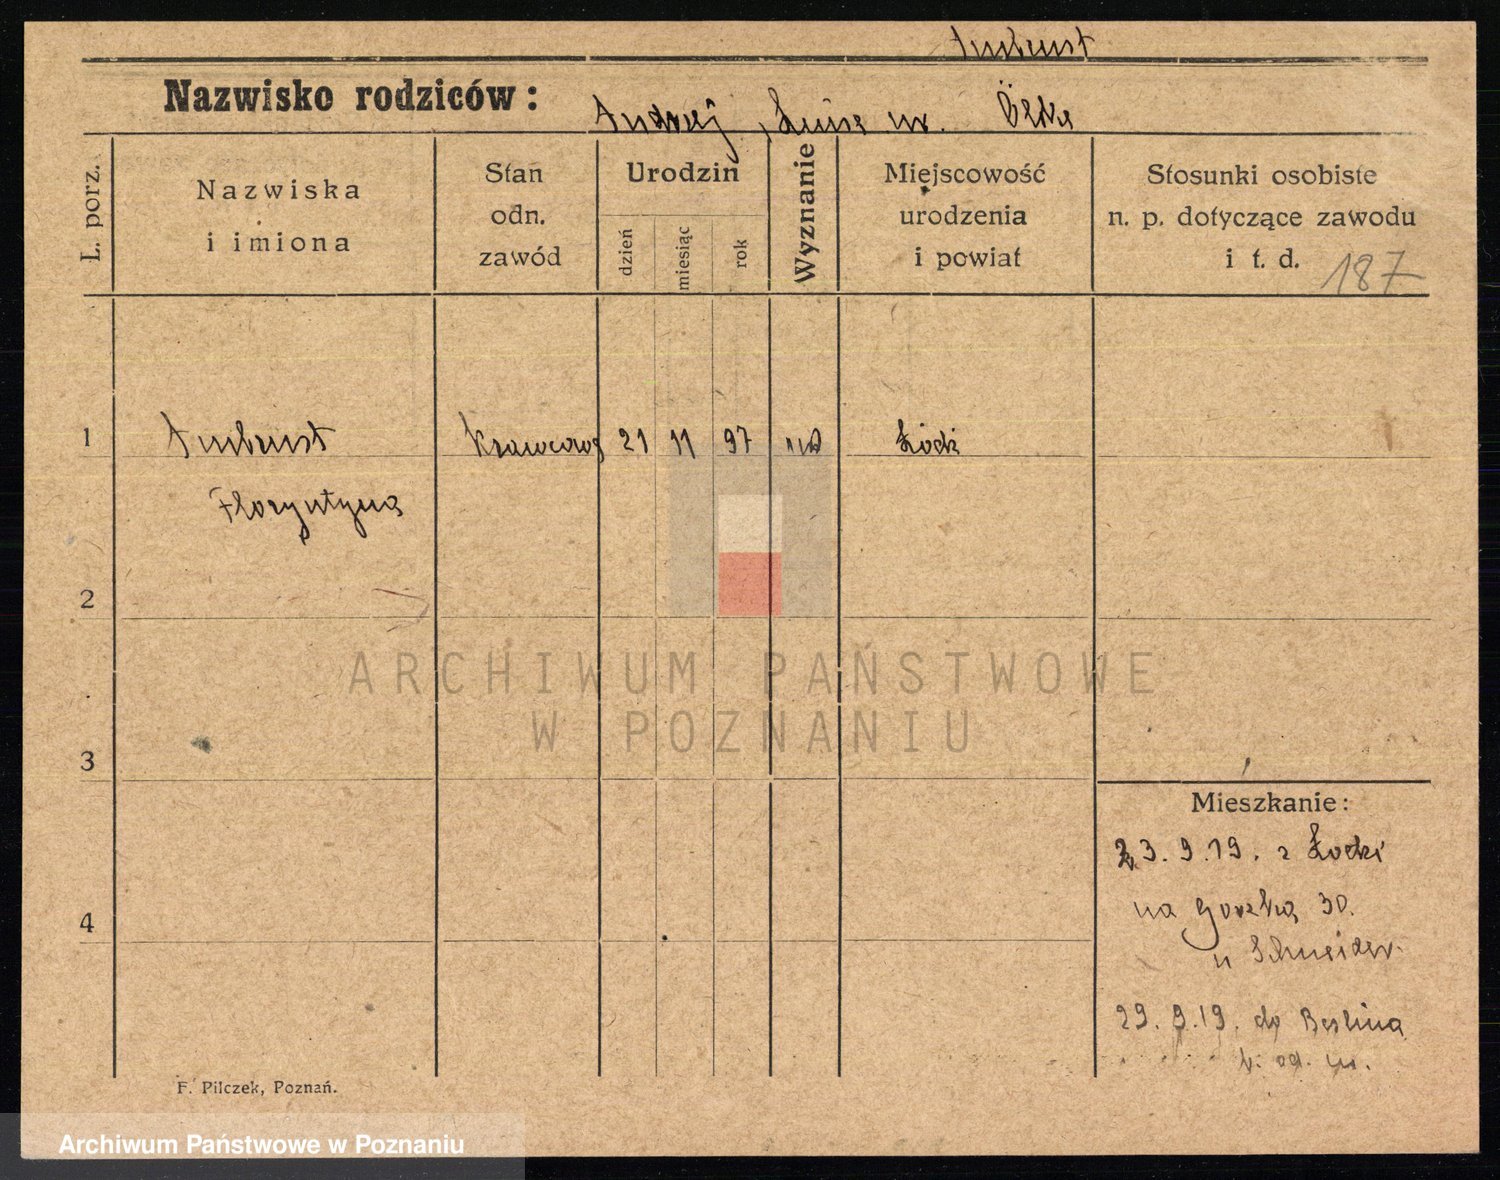 Nazwisko rodziców:
Andrzej, Luiza ur.
L. porz.
Nazwiska
i imiona
Stan
odn.
zawód
Urodzin
dzień
miesiąc
rok
Wyznanie
Miejscowość
urodzenia
i powiat
Stosunki osobiste
n. p. dotyczące zawodu
i t. d.
187
1
Krawcowa 21 11 97 Łódź
Floryntyna
2
3
4
Mieszkanie:
23. 9. 19. z Łodzi
na 30.
u Schneider
29. 9. 19. do Berlina
F. Pilczek, Poznań.
ARCHIWUM PAŃSTWOWE
W POZNANIU
Archiwum Państwowe w Poznaniu